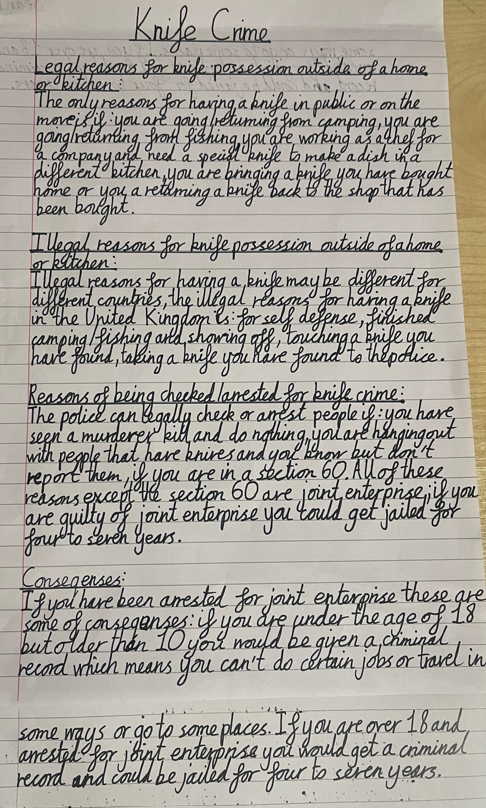 Knife Crime
Legal reasons for knife possession outside of a home
or kitchen:
The only reasons for having a knife in public or on the
move is if: you are going/returning from camping, you are
going/returning from fishing, you are working as a chef for
a company and need a special knife to make a dish in a
different kitchen, you are bringing a knife you have bought
home or you, a returning a knife back to the shop that has
been bought.
Illegal reasons for knife possession outside of a home
or kitchen:
Illegal reasons for having a knife may be different for
different countries, the illegal reasons for having a knife
in the United Kingdom is: for self defense, finished
camping/fishing and showing off, touching a knife you
have found, taking a knife you have found to the police.
Reasons of being checked/arrested for knife crime:
The police can legally check or arrest people if: you have
seen a murderer kill and do nothing, you are hanging out
with people that have knives and you know but don't
report them, if you are in a section 60. All of these
reasons except the section 60 are joint enterprise, if you
are guilty of joint enterprise you could get jailed for
four to seven years.
Conseqenses:
If you have been arrested for joint enterprise these are
some of conseqenses: if you are under the age of 18
but older than 10 you would be given a criminal
record which means you can't do certain jobs or travel in
some ways or go to some places. If you are over 18 and
arrested for joint enterprise you would get a criminal
record and could be jailed for four to seven years.